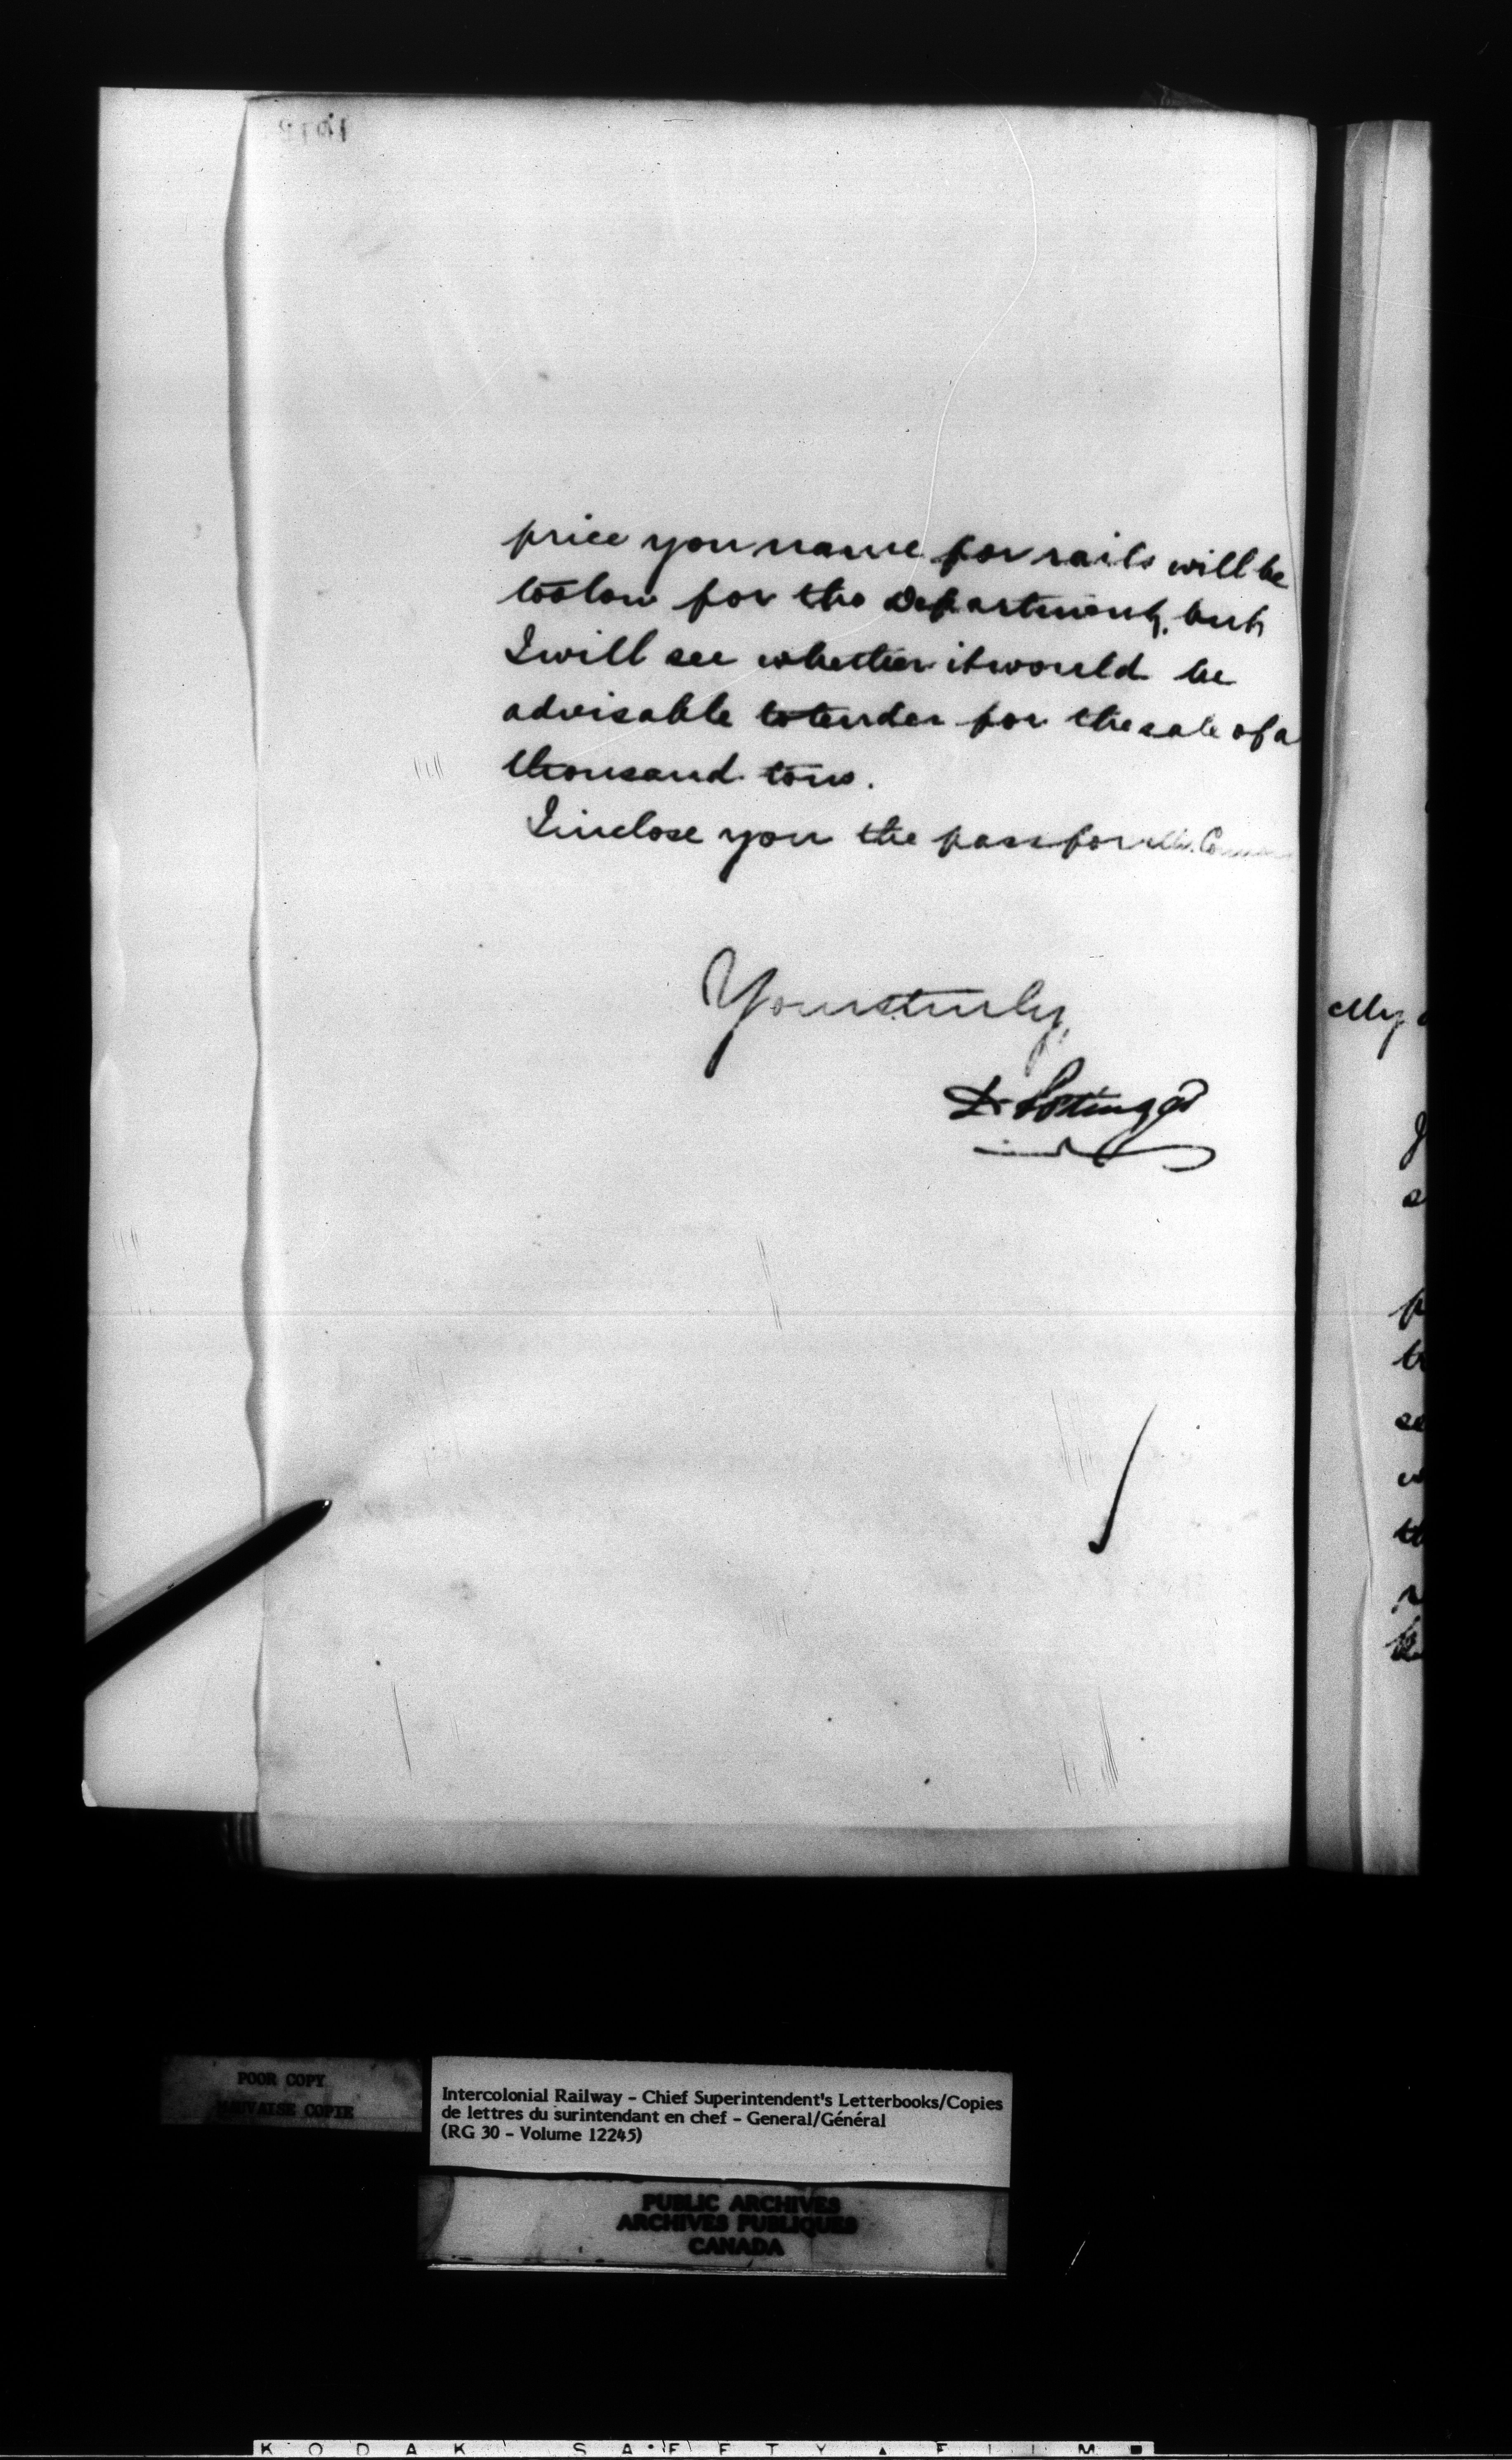 price you name for rails will be
too low for the Department, but
I will see whether it would be
advisable to tender for the sale of a
thousand tons.
I inclose you the pass for Mr.
Yours truly,
D. Pottinger
My
POOR COPY
MAUVAISE COPIE
Intercolonial Railway - Chief Superintendent's Letterbooks/Copies
de lettres du surintendant en chef - General/Général
(RG 30 - Volume 12245)
PUBLIC ARCHIVES
ARCHIVES PUBLIQUES
CANADA
KODAK SAFETY FILM